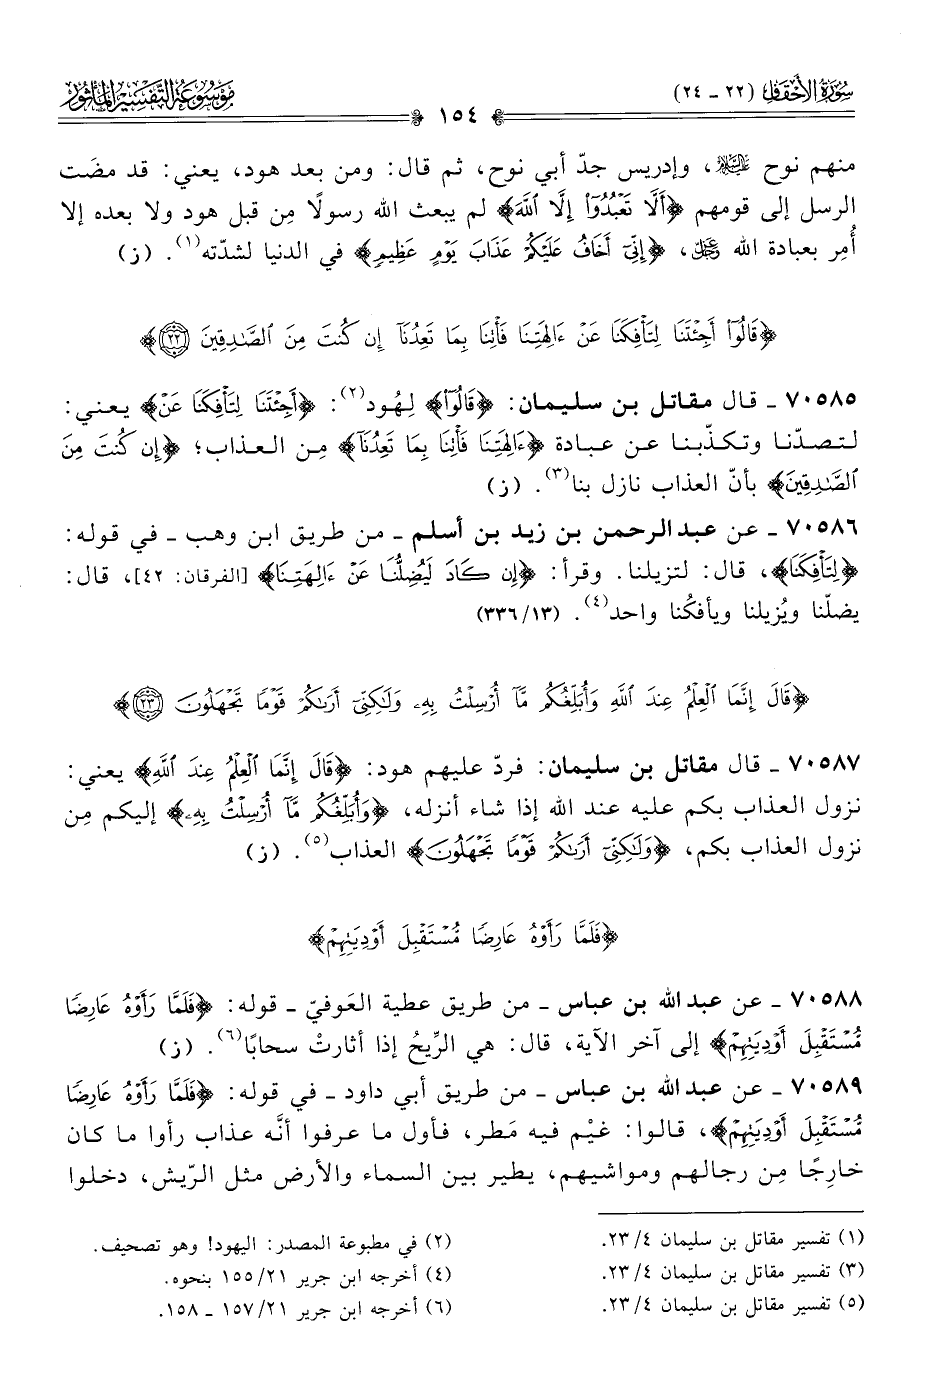 سُورَةُ الأَحْقَافِ (٢٢ - ٢٤)
١٥٤
مَوْسُوعَةُ التَّفْسِيرِ المَأْثُورِ
منهم نوح عليه السلام، وإدريس جدّ أبي نوح، ثم قال: ومن بعد هود، يعني: قد مضَت
الرسل إلى قومهم ﴿أَلَّا تَعْبُدُوٓا۟ إِلَّا ٱللَّهَ﴾ لم يبعث الله رسولًا مِن قبل هود ولا بعده إلا
أُمِر بعبادة الله عز وجل، ﴿إِنِّىٓ أَخَافُ عَلَيْكُمْ عَذَابَ يَوْمٍ عَظِيمٍ﴾ في الدنيا لشدّته(١). (ز)
﴿قَالُوٓا۟ أَجِئْتَنَا لِتَأْفِكَنَا عَنْ ءَالِهَتِنَا فَأْتِنَا بِمَا تَعِدُنَآ إِن كُنتَ مِنَ ٱلصَّـٰدِقِينَ ٢٢﴾
٧٠٥٨٥ ـ قال مقاتل بن سليمان: ﴿قَالُوٓا۟﴾ لِهُود(٢): ﴿أَجِئْتَنَا لِتَأْفِكَنَا عَنْ﴾ يعني:
لتصدّنا وتكذّبنا عن عبادة ﴿ءَالِهَتِنَا فَأْتِنَا بِمَا تَعِدُنَآ﴾ مِن العذاب؛ ﴿إِن كُنتَ مِنَ
ٱلصَّـٰدِقِينَ﴾ بأنّ العذاب نازل بنا(٣). (ز)
٧٠٥٨٦ ـ عن عبد الرحمن بن زيد بن أسلم ـ من طريق ابن وهب ـ في قوله:
﴿لِتَأْفِكَنَا﴾، قال: لتزيلنا. وقرأ: ﴿إِن كَادَ لَيُضِلُّنَا عَنْ ءَالِهَتِنَا﴾ [الفرقان: ٤٢]، قال:
يضلّنا ويُزيلنا ويأفكُنا واحد(٤). (١٣/٣٣٦)
﴿قَالَ إِنَّمَا ٱلْعِلْمُ عِندَ ٱللَّهِ وَأُبَلِّغُكُم مَّآ أُرْسِلْتُ بِهِۦ وَلَـٰكِنِّىٓ أَرَىٰكُمْ قَوْمًا تَجْهَلُونَ ٢٣﴾
٧٠٥٨٧ ـ قال مقاتل بن سليمان: فردّ عليهم هود: ﴿قَالَ إِنَّمَا ٱلْعِلْمُ عِندَ ٱللَّهِ﴾ يعني:
نزول العذاب بكم عليه عند الله إذا شاء أنزله، ﴿وَأُبَلِّغُكُم مَّآ أُرْسِلْتُ بِهِۦ﴾ إليكم مِن
نزول العذاب بكم، ﴿وَلَـٰكِنِّىٓ أَرَىٰكُمْ قَوْمًا تَجْهَلُونَ﴾ العذاب(٥). (ز)
﴿فَلَمَّا رَأَوْهُ عَارِضًا مُّسْتَقْبِلَ أَوْدِيَتِهِمْ﴾
٧٠٥٨٨ ـ عن عبد الله بن عباس ـ من طريق عطية العَوفيّ ـ قوله: ﴿فَلَمَّا رَأَوْهُ عَارِضًا
مُّسْتَقْبِلَ أَوْدِيَتِهِمْ﴾ إلى آخر الآية، قال: هي الرِّيحُ إذا أثارتْ سحابًا(٦). (ز)
٧٠٥٨٩ ـ عن عبد الله بن عباس ـ من طريق أبي داود ـ في قوله: ﴿فَلَمَّا رَأَوْهُ عَارِضًا
مُّسْتَقْبِلَ أَوْدِيَتِهِمْ﴾، قالوا: غيْم فيه مَطر، فأول ما عرفوا أنَّه عذاب رأوا ما كان
خارِجًا مِن رجالهم ومواشيهم، يطير بين السماء والأرض مثل الرّيش، دخلوا
(١) تفسير مقاتل بن سليمان ٢٣/٤.
(٢) في مطبوعة المصدر: اليهود! وهو تصحيف.
(٣) تفسير مقاتل بن سليمان ٢٣/٤.
(٤) أخرجه ابن جرير ١٥٥/٢١ بنحوه.
(٥) تفسير مقاتل بن سليمان ٢٣/٤.
(٦) أخرجه ابن جرير ١٥٧/٢١ ـ ١٥٨.